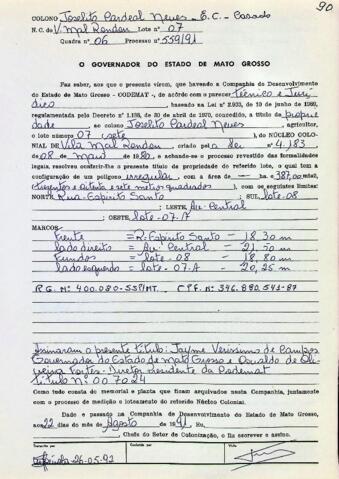 90
COLONO Joselito Cardeal Neves - E.C. - Casado
N. C. de V. Mal Rondon Lote nº 07
Quadra nº 06 Processo nº 559/91
O GOVERNADOR DO ESTADO DE MATO GROSSO
Faz saber, aos que o presente virem, que havendo a Companhia de Desenvolvimento
do Estado de Mato Grosso - CODEMAT -, de acôrdo com o parecer Técnico e Jurí
dico, baseado na Lei nº 2.933, de 19 de junho de 1969,
regulamentada pelo Decreto nº 1.138, de 30 de abril de 1970, concedido, a título de proprie
dade ao colono Joselito Cardeal Neves, agricultor,
o lote número 07 (sete), do NÚCLEO COLO-
NIAL de Vila Mal Rondon, criado pela lei nº 4.183
de 08 de maio de 1980, e achando-se o processo revestido das formalidades
legais, resolveu conferir-lhe o presente título de propriedade do referido lote, o qual tem a
configuração de um polígono irregular, com a área de — ha. e 387,00 m2,
(trezentos e oitenta e sete metros quadrados), com os seguintes limites:
NORTE, Rua Espírito Santo SUL, lote-08
LESTE, Av. Central
OESTE, lote-07-A
MARCOS
frente = R. Espírito Santo - 18,30 m
lado direito = Av. Central - 21,50 m
fundos = lote-08 - 18,80 m
lado esquerdo = lote-07-A - 20,25 m
R.G. Nº 400.080-SSP/MT. C.P.F. Nº 346.880.541-87
Assinaram o presente título: Jayme Verissimo de Campos
Governador do Estado de Mato Grosso e Osvaldo de Oli
veira Fortes - Diretor Presidente da Codemat
título nº 007024
Como tudo consta do memorial e planta que ficam arquivados nesta Companhia, juntamente
com o processo de medição e loteamento do referido Núcleo Colonial.
Dado e passado na Companhia de Desenvolvimento do Estado de Mato Grosso,
aos 22 dias do mês de Agosto de 1991, Eu,
, Chefe do Setor de Colonização, o fiz escrever e assino.
Transcrito por Conferido por Visto
26-05-92